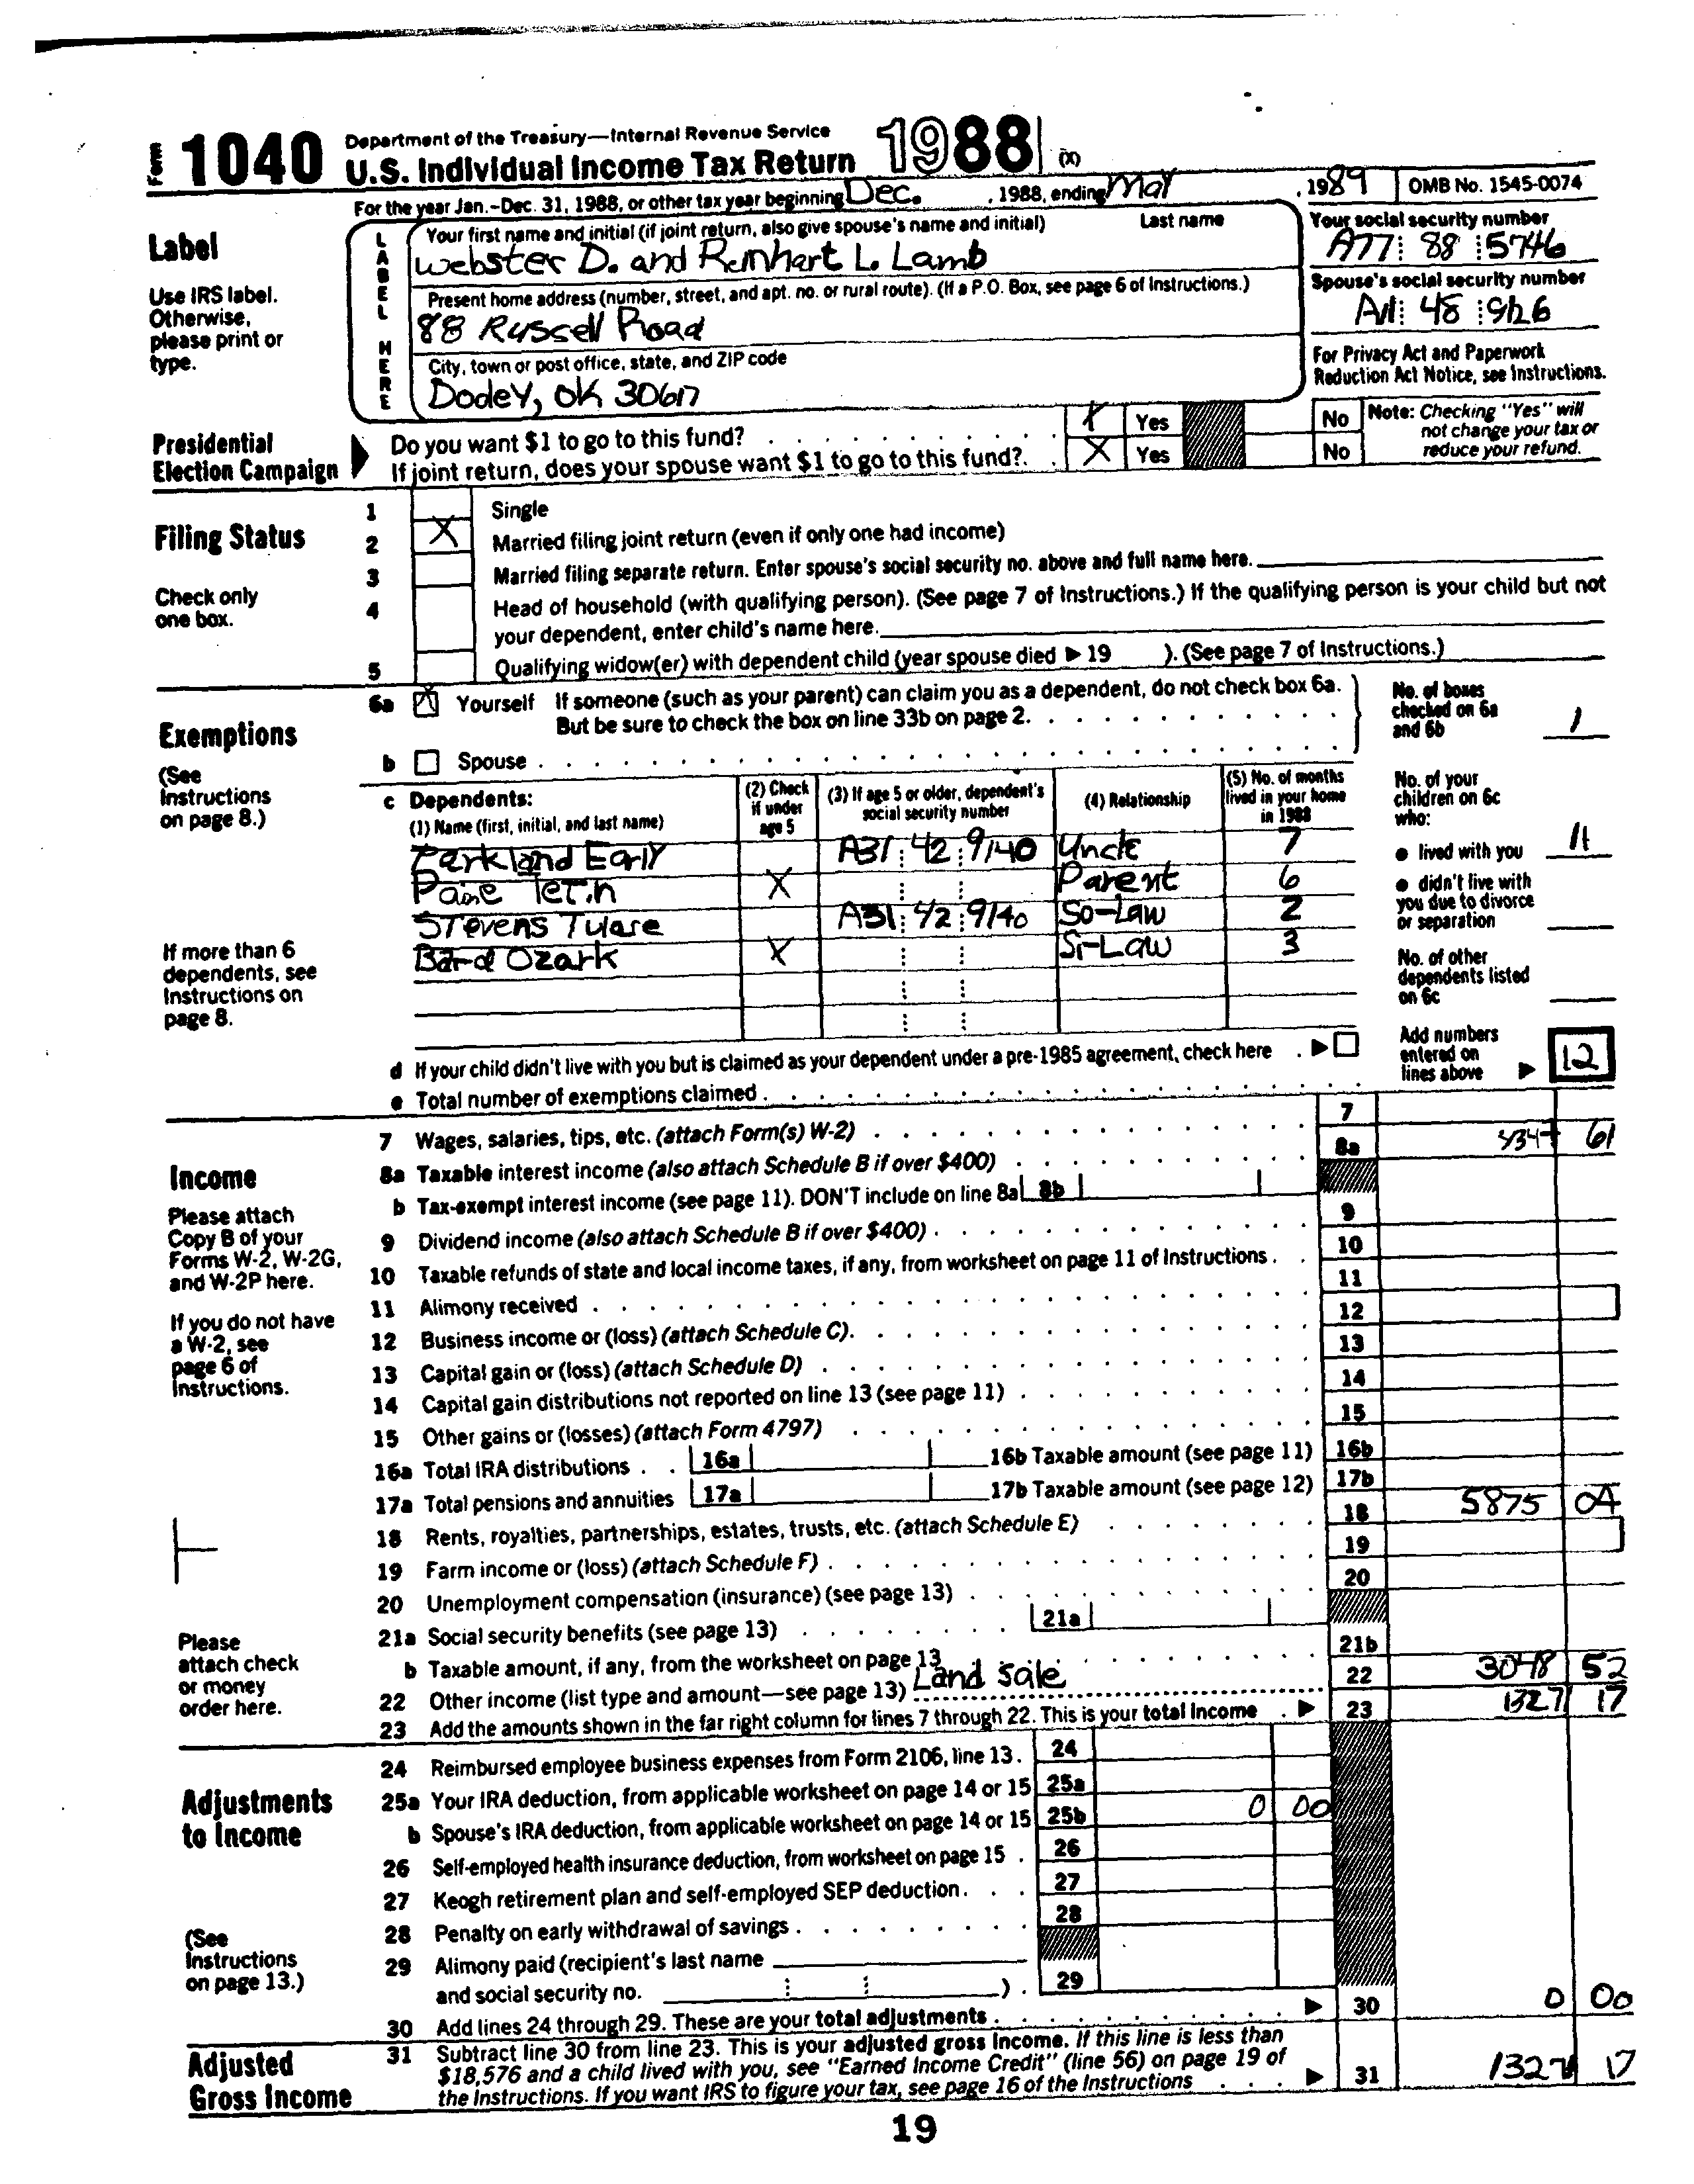 Form 1040 Department of the Treasury—Internal Revenue Service
U.S. Individual Income Tax Return 1988 (X)
For the year Jan.–Dec. 31, 1988, or other tax year beginning Dec. , 1988, ending May , 1989 OMB No. 1545-0074
Label
Use IRS label.
Otherwise,
please print or
type.
LABEL HERE
Your first name and initial (if joint return, also give spouse's name and initial) Last name
Webster D. and Reinhart L. Lamb
Present home address (number, street, and apt. no. or rural route). (If a P.O. Box, see page 6 of Instructions.)
88 Russell Road
City, town or post office, state, and ZIP code
Dodey, OK 30617
Your social security number
A77 88 5746
Spouse's social security number
48
For Privacy Act and Paperwork
Reduction Act Notice, see Instructions.
Presidential
Election Campaign
Do you want $1 to go to this fund? X Yes No
If joint return, does your spouse want $1 to go to this fund? X Yes No
Note: Checking "Yes" will
not change your tax or
reduce your refund.
Filing Status
Check only
one box.
1 Single
2 X Married filing joint return (even if only one had income)
3 Married filing separate return. Enter spouse's social security no. above and full name here.
4 Head of household (with qualifying person). (See page 7 of Instructions.) If the qualifying person is your child but not
your dependent, enter child's name here.
5 Qualifying widow(er) with dependent child (year spouse died ▶ 19 ). (See page 7 of Instructions.)
Exemptions
(See
Instructions
on page 8.)
If more than 6
dependents, see
Instructions on
page 8.
6a X Yourself If someone (such as your parent) can claim you as a dependent, do not check box 6a.
But be sure to check the box on line 33b on page 2.
b Spouse
No. of boxes
checked on 6a
and 6b 1
c Dependents:
(1) Name (first, initial, and last name)
(2) Check
if under
age 5
(3) If age 5 or older, dependent's
social security number
(4) Relationship
(5) No. of months
lived in your home
in 1988
Parkland Early A31 42 9140 Uncle 7
Paine X Parent 6
Stevens Tulare A31 42 9140 So-Law 2
Bard Ozark X Si-Law 3
No. of your
children on 6c
who:
● lived with you 11
● didn't live with
you due to divorce
or separation
No. of other
dependents listed
on 6c
Add numbers
entered on
lines above ▶ 12
d If your child didn't live with you but is claimed as your dependent under a pre-1985 agreement, check here ▶
e Total number of exemptions claimed
Income
Please attach
Copy B of your
Forms W-2, W-2G,
and W-2P here.
If you do not have
a W-2, see
page 6 of
Instructions.
Please
attach check
or money
order here.
7 Wages, salaries, tips, etc. (attach Form(s) W-2) 7
8a Taxable interest income (also attach Schedule B if over $400) 8a 61
b Tax-exempt interest income (see page 11). DON'T include on line 8a 8b
9 Dividend income (also attach Schedule B if over $400) 9
10 Taxable refunds of state and local income taxes, if any, from worksheet on page 11 of Instructions 10
11 Alimony received 11
12 Business income or (loss) (attach Schedule C) 12
13 Capital gain or (loss) (attach Schedule D) 13
14 Capital gain distributions not reported on line 13 (see page 11) 14
15 Other gains or (losses) (attach Form 4797) 15
16a Total IRA distributions 16a 16b Taxable amount (see page 11) 16b
17a Total pensions and annuities 17a 17b Taxable amount (see page 12) 17b
18 Rents, royalties, partnerships, estates, trusts, etc. (attach Schedule E) 18 5875 04
19 Farm income or (loss) (attach Schedule F) 19
20 Unemployment compensation (insurance) (see page 13) 20
21a Social security benefits (see page 13) 21a
b Taxable amount, if any, from the worksheet on page 13 21b
22 Other income (list type and amount—see page 13) Land Sale 22 3048 52
23 Add the amounts shown in the far right column for lines 7 through 22. This is your total income ▶ 23 1327 17
Adjustments
to Income
(See
Instructions
on page 13.)
24 Reimbursed employee business expenses from Form 2106, line 13 24
25a Your IRA deduction, from applicable worksheet on page 14 or 15 25a
b Spouse's IRA deduction, from applicable worksheet on page 14 or 15 25b 0 00
26 Self-employed health insurance deduction, from worksheet on page 15 26
27 Keogh retirement plan and self-employed SEP deduction 27
28 Penalty on early withdrawal of savings 28
29 Alimony paid (recipient's last name
and social security no. ) 29
30 Add lines 24 through 29. These are your total adjustments ▶ 30 0 00
Adjusted
Gross Income
31 Subtract line 30 from line 23. This is your adjusted gross income. If this line is less than
$18,576 and a child lived with you, see "Earned Income Credit" (line 56) on page 19 of
the Instructions. If you want IRS to figure your tax, see page 16 of the Instructions ▶ 31 1327 17
19